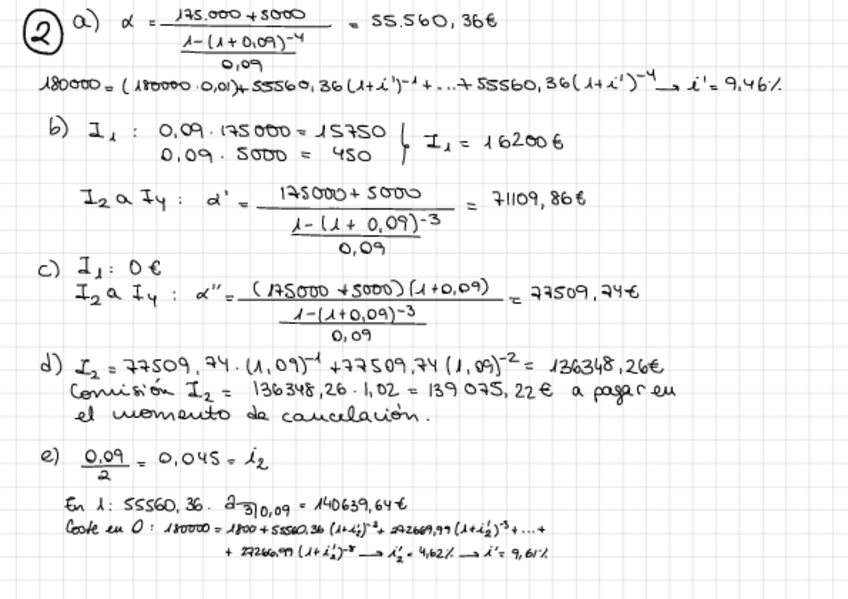 ② a) α = 175.000 + 5000 / (1-(1+0,09)^-4 / 0,09) = 55.560,36€
180000 = (180000·0,01) + 55560,36(1+i')^-1 + ... + 55560,36(1+i')^-4 → i' = 9,46%
b) I₁ : 0,09·175000 = 15750
0,09 · 5000 = 450 } I₁ = 16200€
I₂ a I₄ : α' = 175000 + 5000 / (1-(1+0,09)^-3 / 0,09) = 71109,86€
c) I₁ : 0€
I₂ a I₄ : α'' = (175000 + 5000)(1+0,09) / (1-(1+0,09)^-3 / 0,09) = 77509,74€
d) I₂ = 77509,74·(1,09)^-1 + 77509,74(1,09)^-2 = 136348,26€
Comisión I₂ = 136348,26·1,02 = 139075,22€ a pagar en
el momento de cancelación.
e) 0,09 / 2 = 0,045 = i₂
En 1: 55560,36 · a 3|0,09 = 140639,64€
Coste en 0 : 180000 = 1800 + 55560,36 (1+i₂')^-2 + 272669,99 (1+i₂')^-3 + ... +
+ 27266,99 (1+i₂')^-8 → i₂' = 4,62% → i' = 9,61%